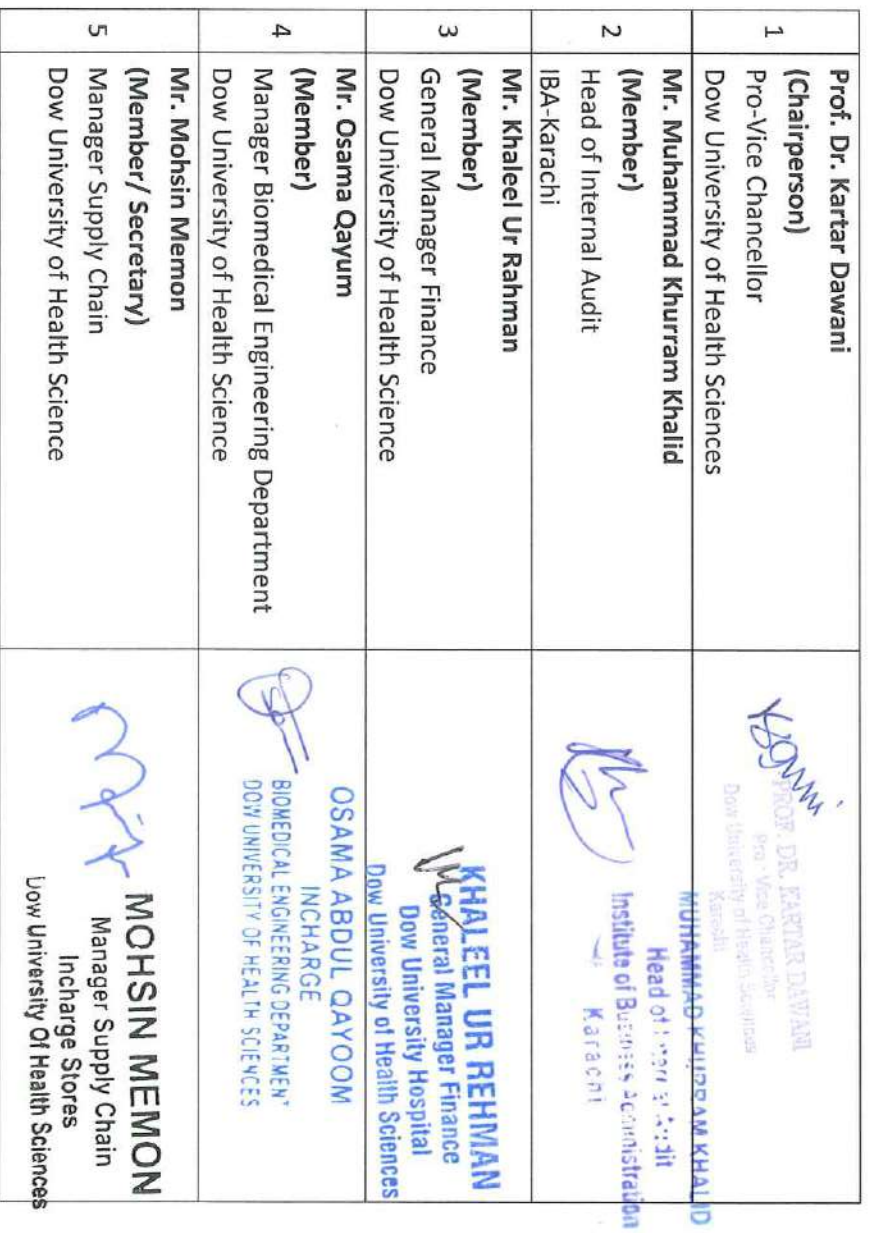 1
Prof. Dr. Kartar Dawani
(Chairperson)
Pro-Vice Chancellor
Dow University of Health Sciences
PROF. DR. KARTAR DAWANI
Pro - Vice Chancellor
Dow University of Health Sciences
Karachi
2
Mr. Muhammad Khurram Khalid
(Member)
Head of Internal Audit
IBA-Karachi
MUHAMMAD KHURRAM KHALID
Head of Internal Audit
Institute of Business Administration
Karachi
3
Mr. Khaleel Ur Rahman
(Member)
General Manager Finance
Dow University of Health Science
KHALEEL UR REHMAN
General Manager Finance
Dow University Hospital
Dow University of Health Sciences
4
Mr. Osama Qayum
(Member)
Manager Biomedical Engineering Department
Dow University of Health Science
OSAMA ABDUL QAYOOM
INCHARGE
BIOMEDICAL ENGINEERING DEPARTMENT
DOW UNIVERSITY OF HEALTH SCIENCES
5
Mr. Mohsin Memon
(Member/ Secretary)
Manager Supply Chain
Dow University of Health Science
MOHSIN MEMON
Manager Supply Chain
Incharge Stores
Dow University Of Health Sciences